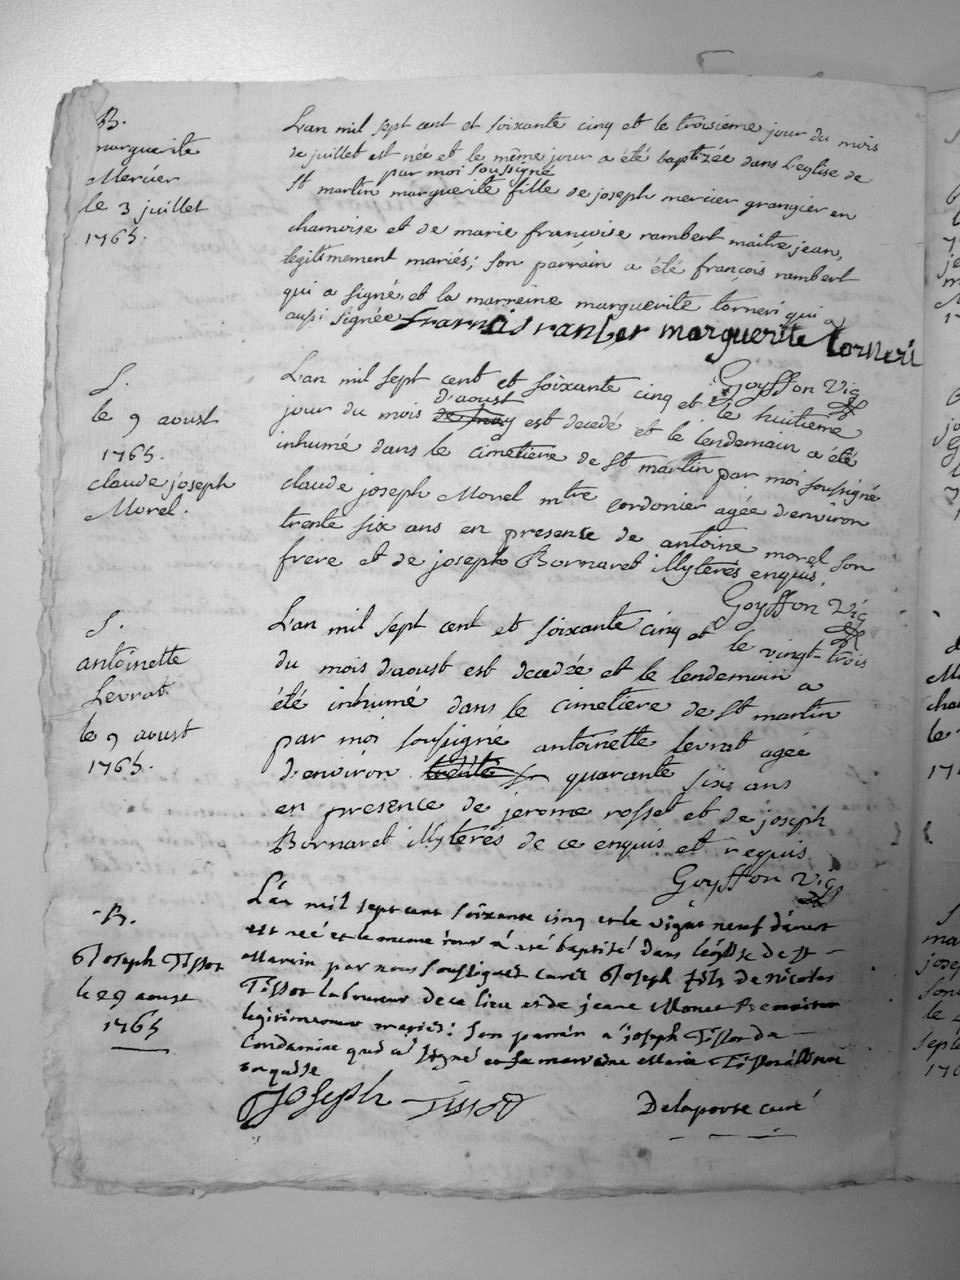 B.
marguerite
Mercier
le 3 juillet
1765.
L'an mil sept cent et soixante cinq et le troisieme jour du mois
de juillet est née et le même jour a été baptizée dans L'eglise de
par moi soussigné
St martin marguerite fille de joseph mercier grangier en
chamoise et de marie francoise rambert maitre jean,
légitimement mariés; son parrain a été françois rambert
qui a signé, et la marreine marguerite torneri qui a
aussi signée francois ranber marguerite torneri
Goyffon Vic
S.
le 9 aoust
1765.
claude joseph
Morel.
L'an mil sept cent et soixante cinq et le huitieme
d'aoust
jour du mois est decedé et le lendemain a été
inhumé dans le cimetiere de St martin par moi soussigné
claude joseph Morel mtre cordonier agée d'environ
trente six ans en presense de antoine morel son
frere et de joseph Bornaret illyterés enquis.
Goyffon Vic
S.
antoinette
Levrat
le 9 aoust
1765.
L'an mil sept cent et soixante cinq et le vingt-trois
du mois d'aoust est decedée et le lendemain a
été inhumé dans le cimetiere de St martin
par moi soussigné antoinette levrat agée
d'environ quarante six ans
en presence de jerome rosset et de joseph
Bornaret illyterés de ce enquis et requis
Goyffon Vic
B.
Joseph Tissot
le 29 aoust
1765
L'an mil sept cent soixante cinq et le vignt neuf d'aoust
est neé et le meme jour a eté baptisé dans l'église de St
Martin par nous soussigné curé Joseph fils de nicolas
Tissot laboureur de ce lieu et de jeane Monet
legitimement mariés: son parrin a joseph Tissot de
Condamine qui a signé et la marraine Maria Tissot
enquise
Joseph Tissot
Delaporte curé